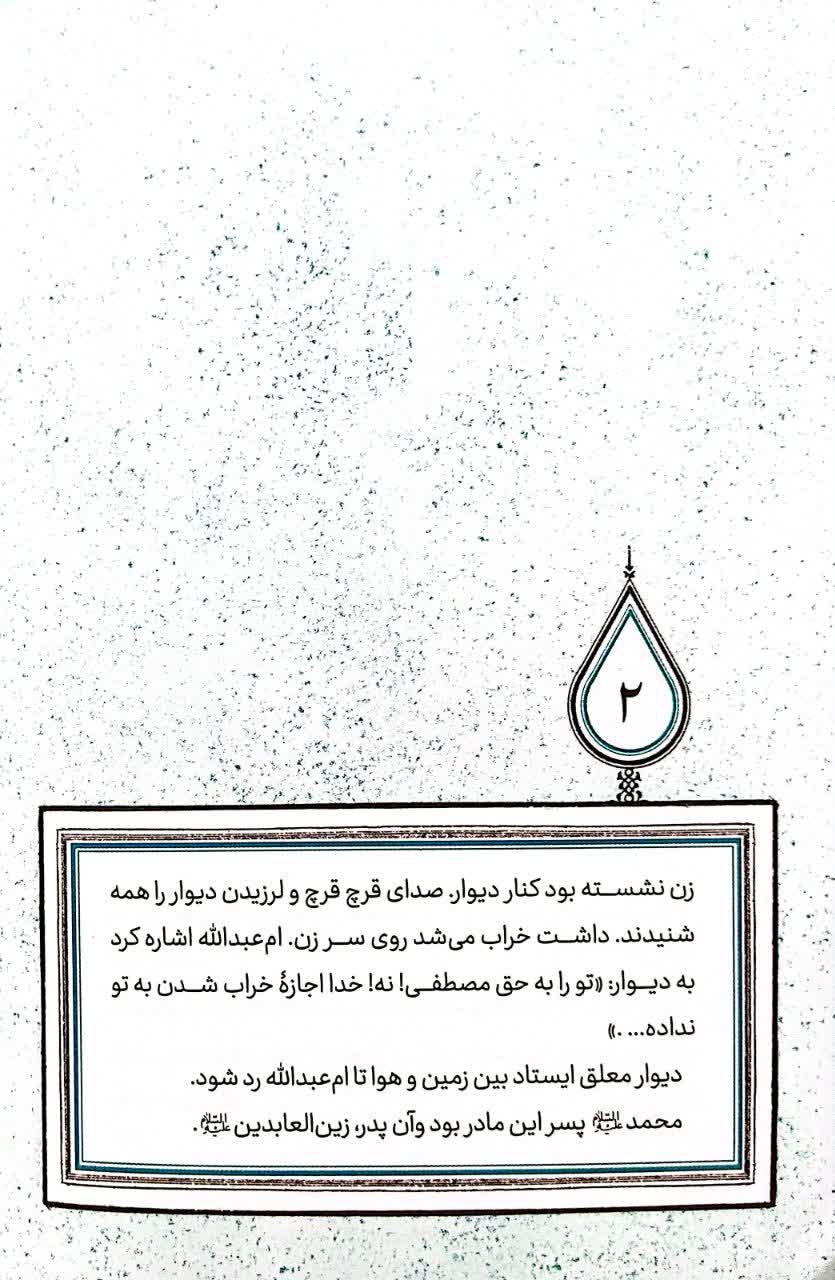 ۲
زن نشسته بود کنار دیوار. صدای قرچ قرچ و لرزیدن دیوار را همه
شنیدند. داشت خراب می‌شد روی سر زن. ام‌عبدالله اشاره کرد
به دیوار: «تو را به حق مصطفی! نه! خدا اجازهٔ خراب شدن به تو
نداده... .»
دیوار معلق ایستاد بین زمین و هوا تا ام‌عبدالله رد شود.
محمد علیه‌السلام پسر این مادر بود وآن پدر، زین‌العابدین علیه‌السلام.